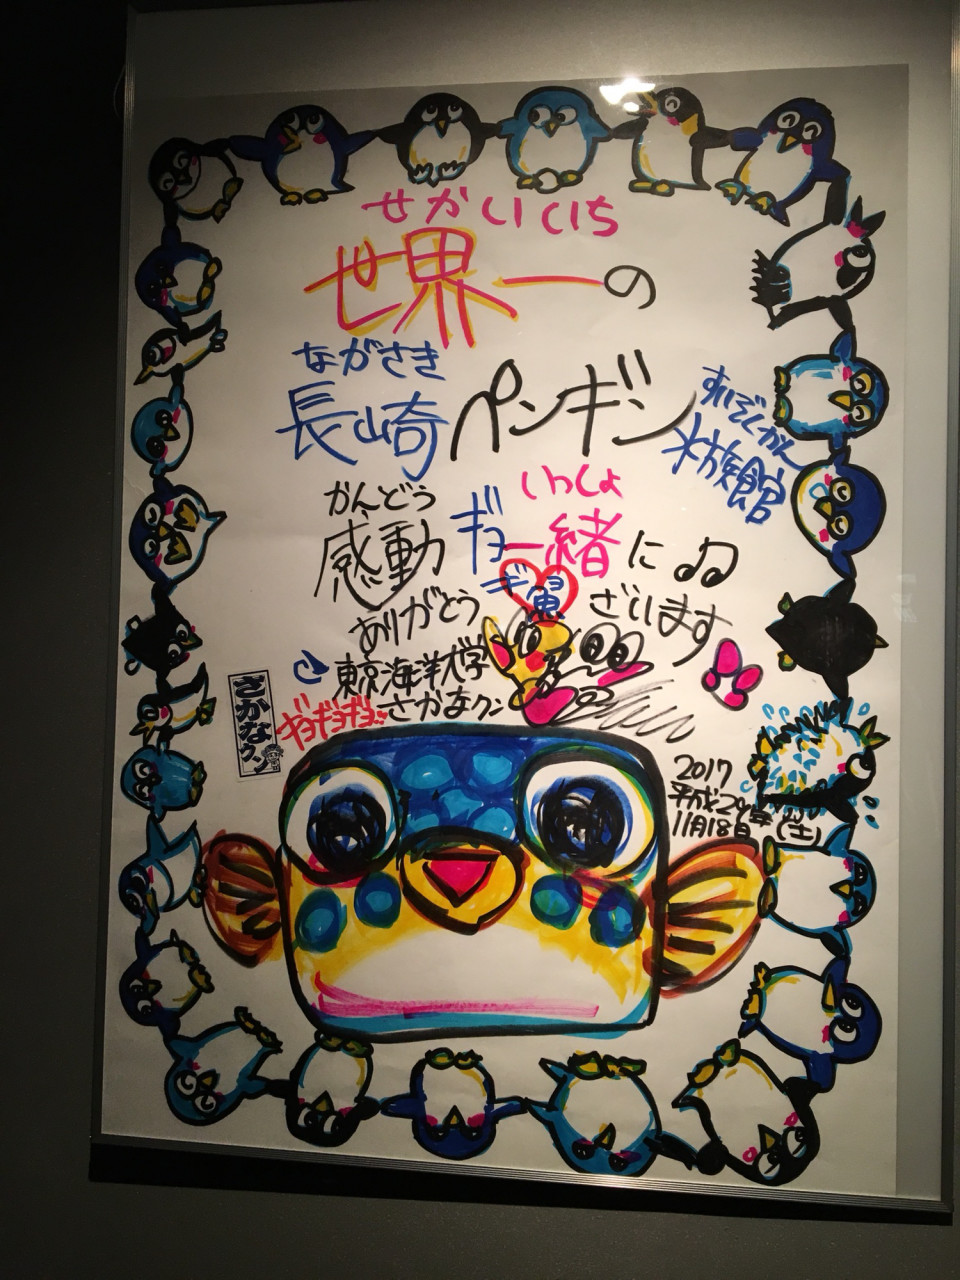 せかいいち
世界一の
ながさき
長崎ペンギン
すいぞくかん
水族館
かんどう
感動
いっしょ
ギョ一緒に♫
ありがとう
ギョ
魚
ざいます
東京海洋大学
ギョギョギョッ さかなクン
さかなクン
2017
平成29年
11月18日(土)